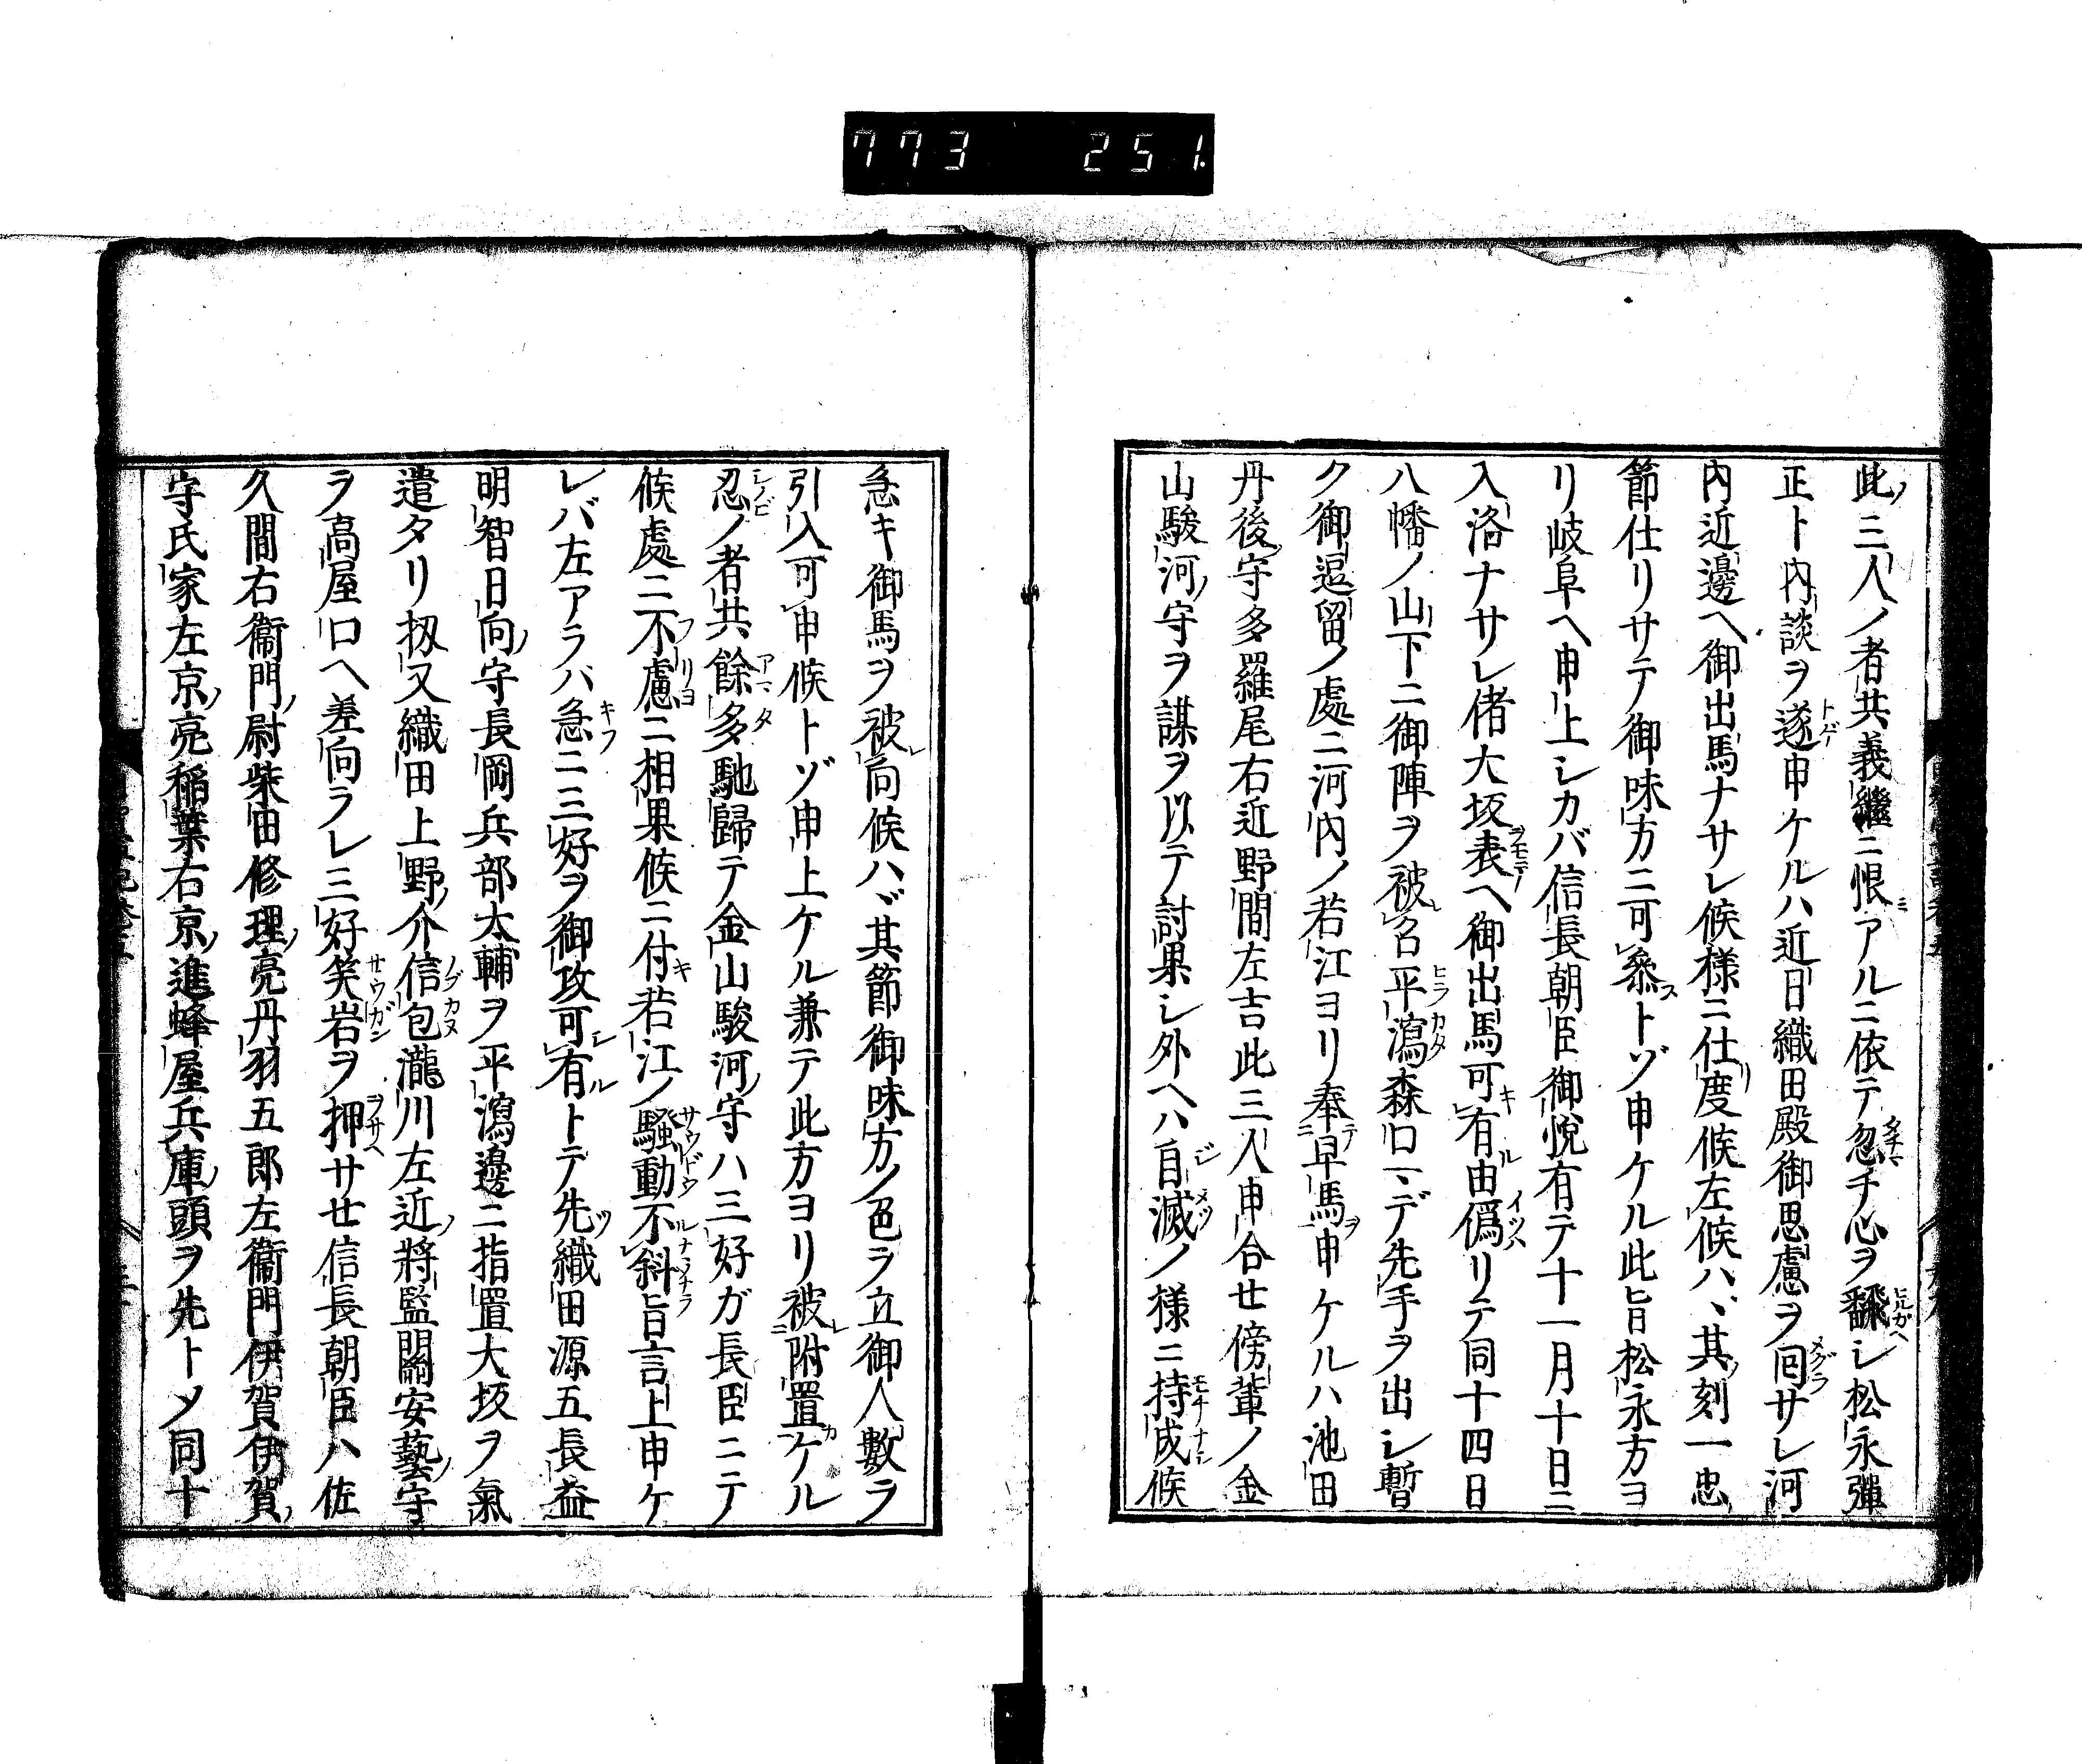 773 251
此三人ノ者共義繼ニ恨アルニ依テ忽チ心ヲ飜シ松永彈
正ト内談ヲ遂申ケルハ近日織田殿御思慮ヲ囘サレ河
内近邊ヘ御出馬ナサレ候様ニ仕度候左候ハヽ其刻一忠
節仕リサテ御味方ニ可參トゾ申ケル此旨松永方ヨ
リ岐阜ヘ申上シカバ信長朝臣御悅有テ十一月十日ニ
入洛ナサレ偖大坂表ヘ御出馬可有由僞リテ同十四日
八幡ノ山下ニ御陣ヲ被召平瀉森口マデ先手ヲ出シ暫
ク御逗留ノ處ニ河内ノ若江ヨリ奉早馬申ケルハ池田
丹後守多羅尾右近野間左吉此三人申合セ傍輩ノ金
山駿河守ヲ謀ヲ以テ討果シ外ヘハ自滅ノ様ニ持成候
急キ御馬ヲ被向候ハヾ其節御味方ノ色ヲ立御人數ヲ
引入可申候トゾ申上ケル兼テ此方ヨリ被附置ケル
忍ノ者共餘多馳歸テ金山駿河守ハ三好ガ長臣ニテ
候處ニ不慮ニ相果候ニ付若江ノ騷動不斜旨言上申ケ
レバ左アラバ急ニ三好ヲ御攻可有トテ先織田源五長益
明智日向守長岡兵部大輔ヲ平瀉邊ニ指置大坂ヲ氣
遣タリ扨又織田上野介信包瀧川左近將監關安藝守
ヲ高屋口ヘ差向ラレ三好笑岩ヲ押サセ信長朝臣ハ佐
久間右衞門尉柴田修理亮丹羽五郎左衞門伊賀伊賀
守氏家左京亮稲葉右京進蜂屋兵庫頭ヲ先トメ同十